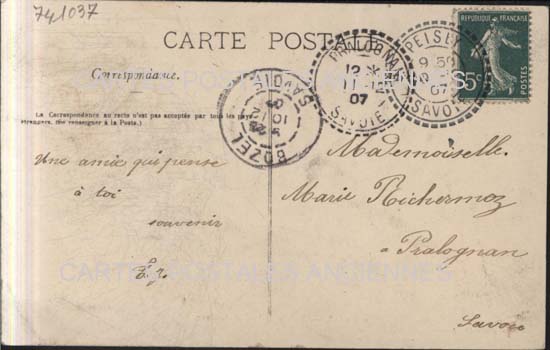 741037
CARTE POSTALE
Correspondance.
(La Correspondance au recto n'est pas acceptée par tous les pays
étrangers. (Se renseigner à la Poste.)
Une amie qui pense
à toi
souvenir
Mademoiselle
Marie Richermoz
à Pralognan
Savoie
PRALOGNAN
12 *
11
07
SAVOIE
PEISEY
9 50
07
SAVOIE
BOZEL
SAVOIE
REPUBLIQUE FRANÇAISE
5c
POSTES
CARTES POSTALES ANCIENNES